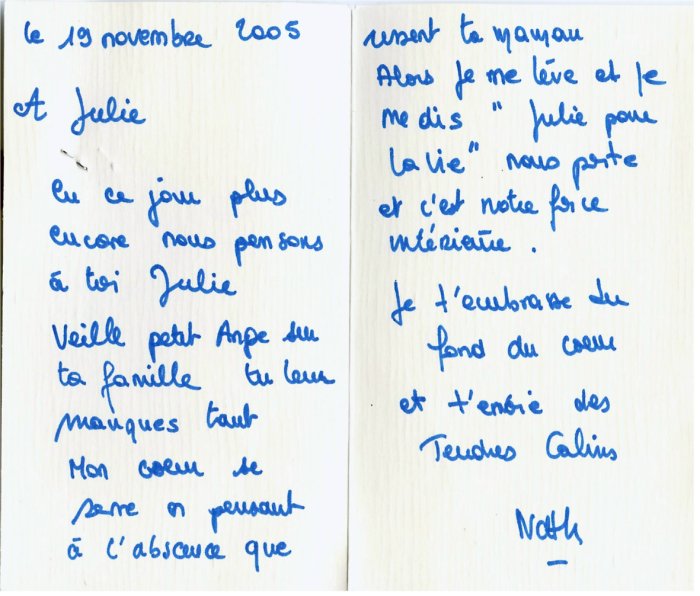 le 19 novembre 2005
A Julie
En ce jour plus
encore nous pensons
à toi Julie
Veille petit Ange sur
ta famille tu leur
manques tant
Mon coeur se
serre en pensant
à l'absence que
ressent ta maman
Alors je me lève et je
me dis " Julie pour
la vie" nous porte
et c'est notre force
intérieure .
Je t'embrasse du
fond du coeur
et t'envoie des
Tendres Calins
Nath